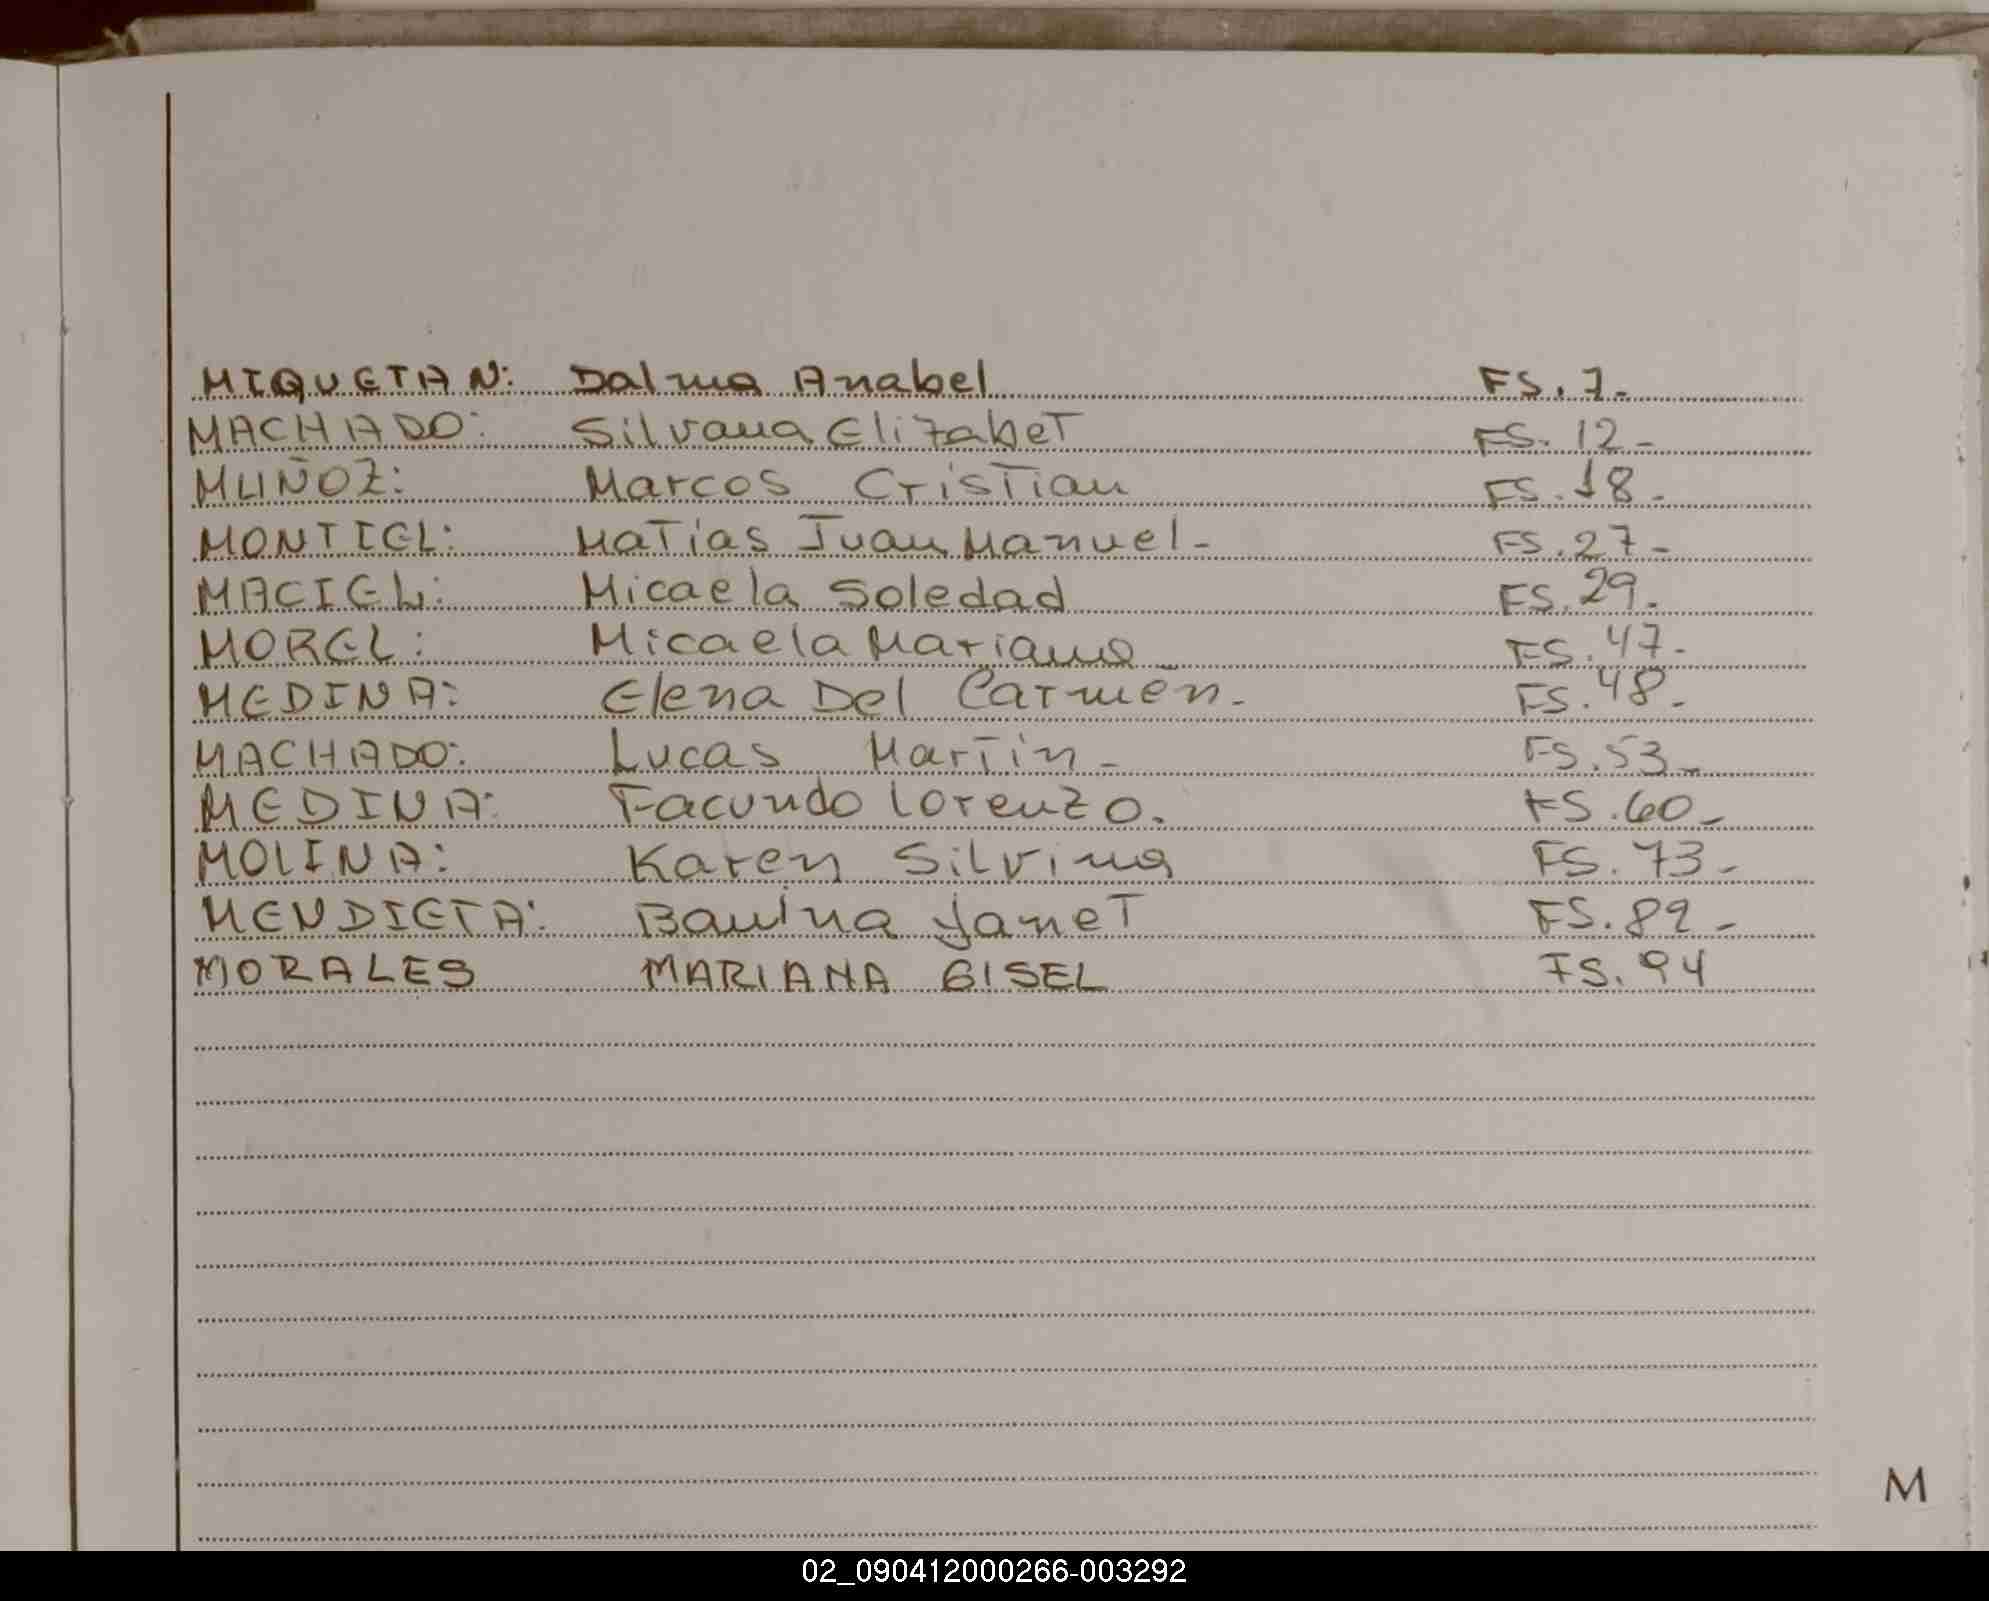 MIQUETAN: Dalma Anabel FS. 7-
MACHADO: Silvana Elizabet FS. 12-
MUÑOZ: Marcos Cristian FS. 18-
MONTIEL: Matias Juan Manuel- FS. 27-
MACIEL: Micaela Soledad FS. 29-
MOREL: Micaela Mariana- FS. 47-
MEDINA: Elena Del Carmen- FS. 48-
MACHADO: Lucas Martin- FS. 53-
MEDINA: Facundo Lorenzo. FS. 60-
MOLINA: Karen Silvina FS. 73-
MENDIETA: Janet FS. 82-
MORALES MARIANA GISEL FS. 94
M
02_090412000266-003292